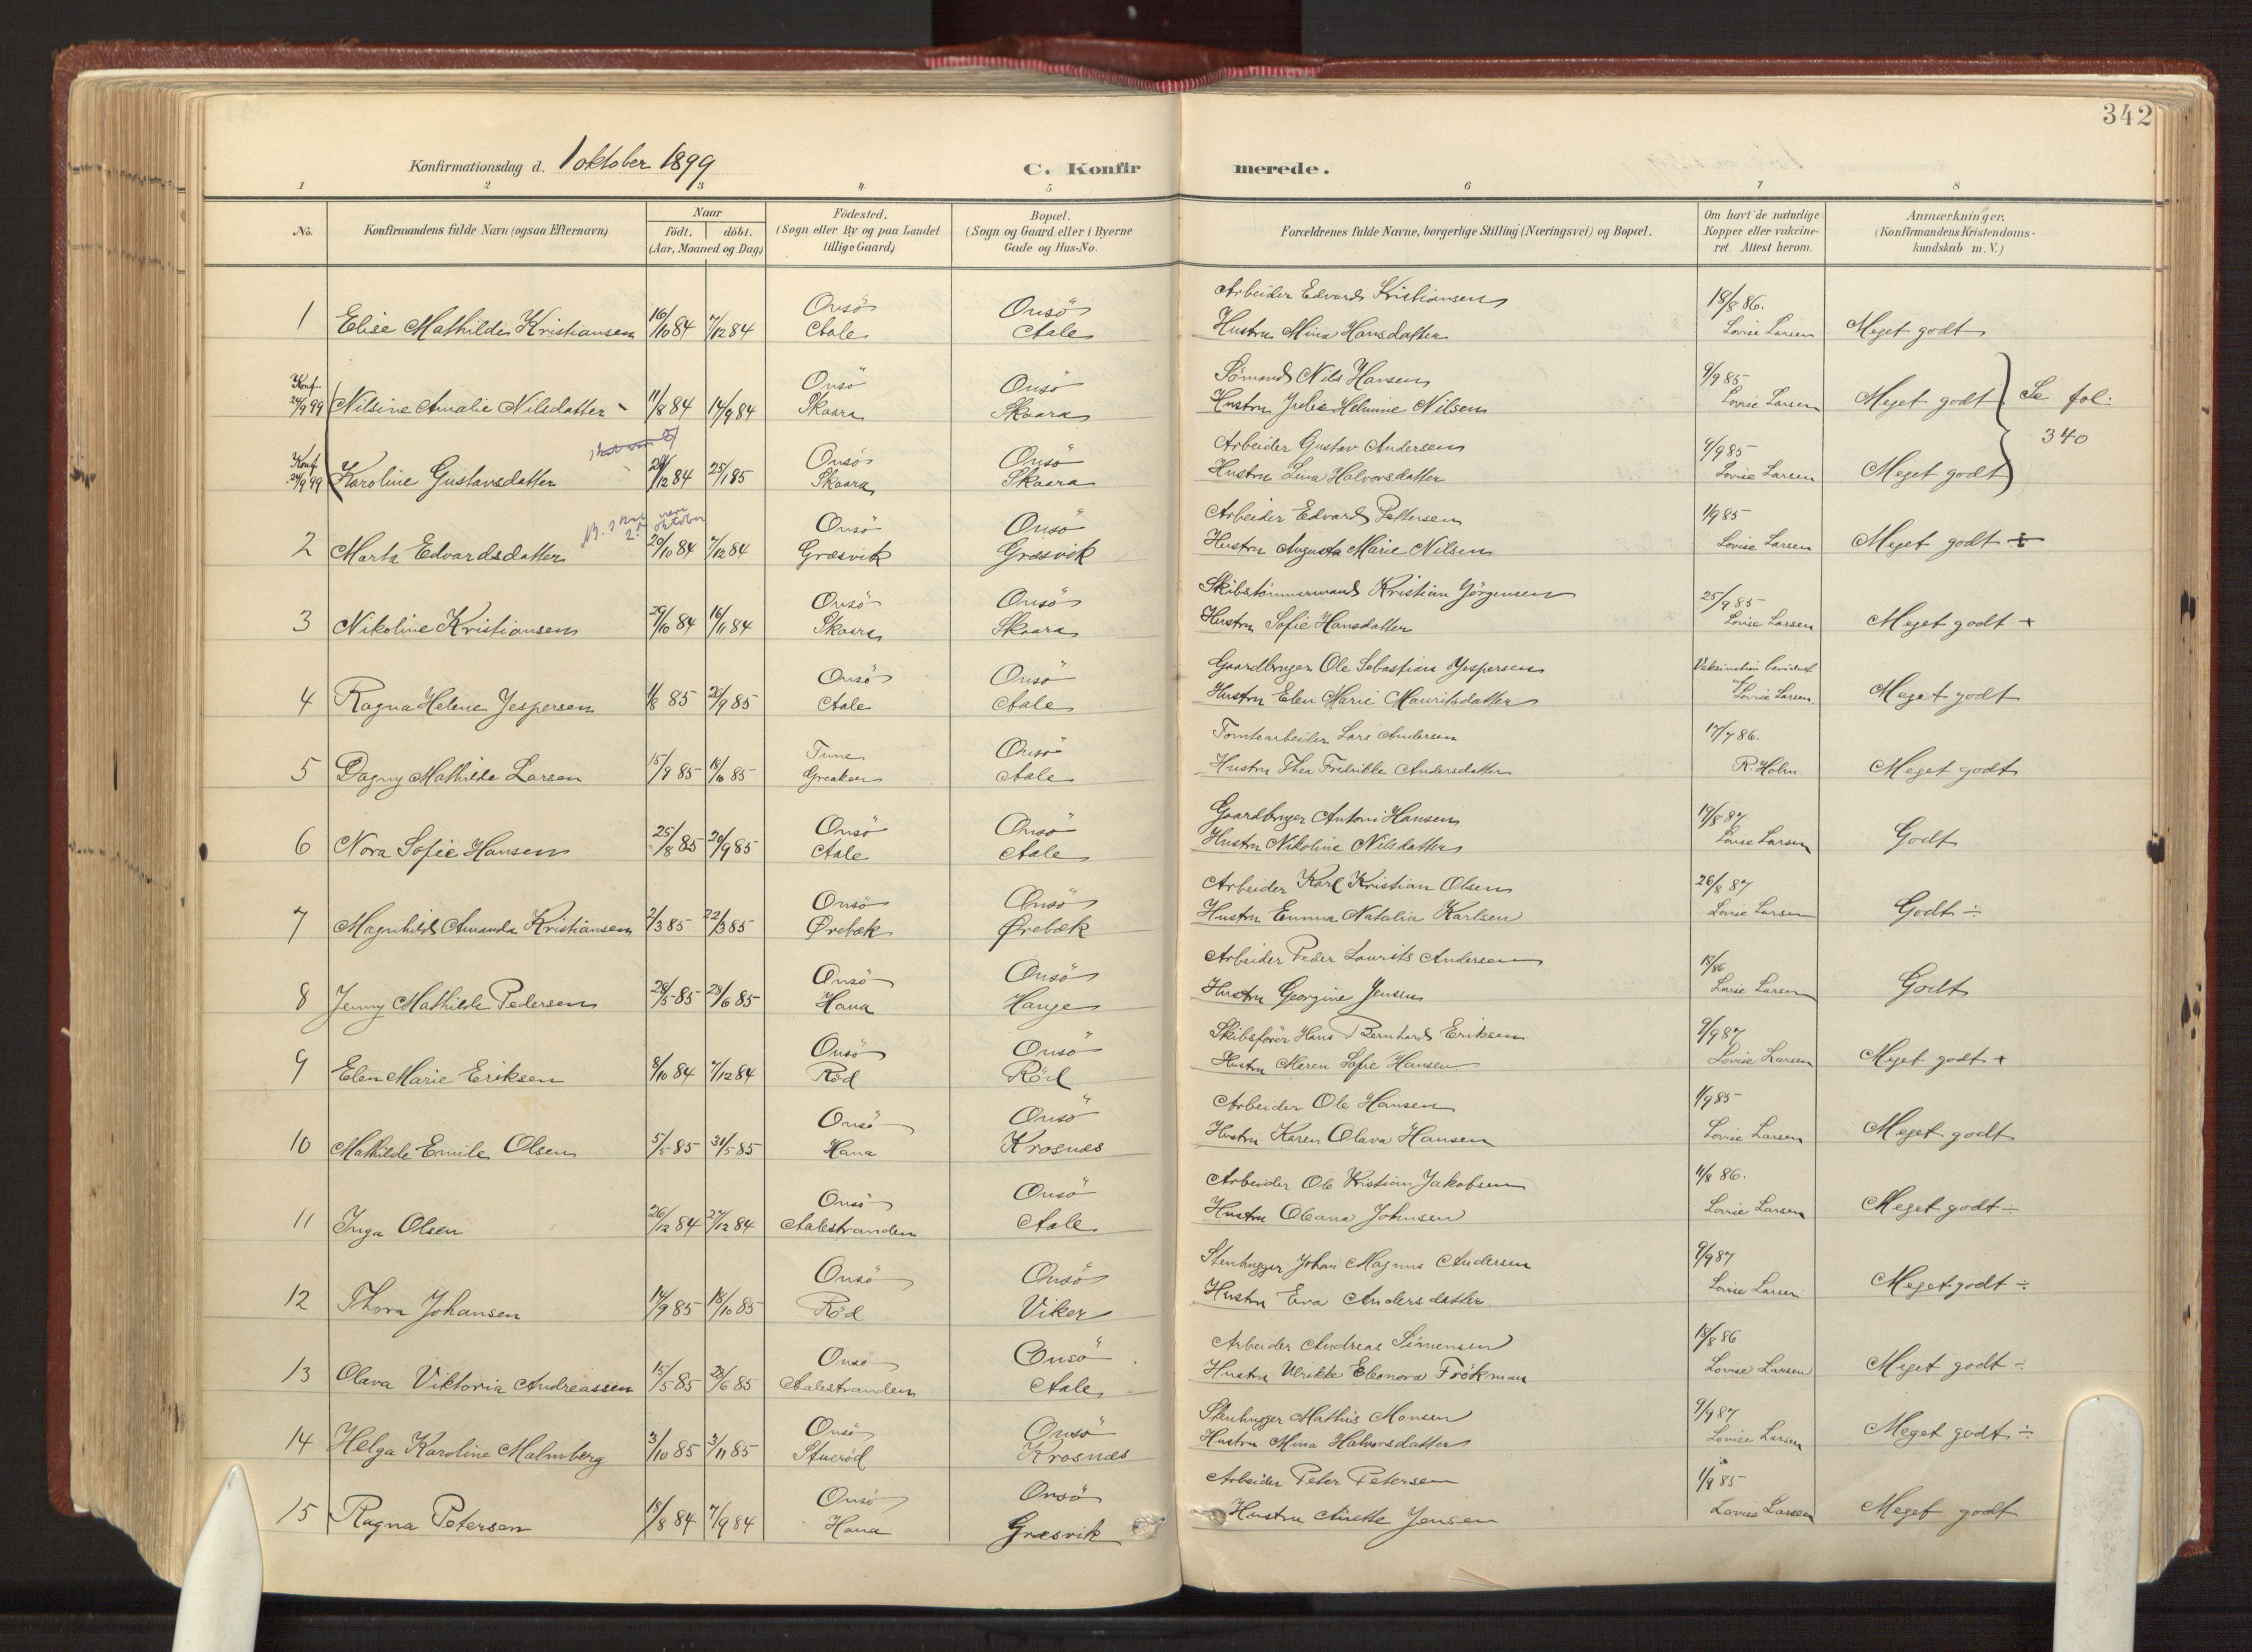 342
Konfirmationsdag d. 1 oktober 1899
C. Konfirmerede.
1 2 3 4 5 6 7 8
No.
Konfirmandens fulde Navn (ogsaa Efternavn)
Naar
födt. döbt.
(Aar, Maaned og Dag)
Födested.
(Sogn eller By og paa Landet
tillige Gaard)
Bopæl.
(Sogn og Gaard eller i Byerne
Gade og Hus-No.
Forældrenes fulde Navne, borgerlige Stilling (Næringsvei) og Bopæl.
Om havt de naturlige
Kopper eller vakcine-
ret. Attest herom.
Anmærkninger.
(Konfirmandens Kristendoms-
kundskab m. V.)
Onsö Onsö Arbeider Edvard Kristiansen 18/8 86.
1 Elise Mathilde Kristiansen 16/10 84 7/12 84 Aale Aale Hustru Mina Hansdatter Lovise Larsen Meget godt
Konf. Onsö Onsö Sömand Nils Hansen 9/9 85
24/9 99 Nilsine Amalie Nilsdatter 11/8 84 14/9 84 Skaara Skaara Hustru Julie Helmine Nilsen Lovise Larsen Meget godt Se fol.
340
Konf. Onsö Onsö Arbeider Gustav Andersen 9/9 85
24/9 99 Karoline Gustavsdatter 12 84 25/1 85 Skaara Skaara Hustru Lina Halvorsdatter Lovise Larsen Meget godt
oktober Onsö Onsö Arbeider Edvard Pettersen 1/9 85
2 Marta Edvardsdatter 20/10 84 7/12 84 Græsvik Græsvik Hustru Augusta Marie Nilsen Lovise Larsen Meget godt ÷
Onsö Onsö Skibstömmermand Kristian Jörgensen 25/9 85
3 Nikoline Kristiansen 29/10 84 16/11 84 Skaara Skaara Hustru Sofie Hansdatter Lovise Larsen Meget godt +
Onsö Onsö Gaardbruger Ole Sebastian Jespersen Vaksination bevidnet
af
4 Ragna Helene Jespersen 1/8 85 20/9 85 Aale Aale Hustru Elen Marie Mauritsdatter Lovise Larsen Meget godt
Tune Onsö Tomtearbeider Lars Andersen 17/7 86.
5 Dagny Mathilde Larsen 15/9 85 18/10 85 Greaker Aale Hustru Thea Fredrikke Andersdatter R. Holm Meget godt
Onsö Onsö Gaardbruger Anton Hansen 19/8 87
6 Nora Sofie Hansen 25/8 85 20/9 85 Aale Aale Hustru Nikoline Nilsdatter Lovise Larsen Godt
Onsö Onsö Arbeider Karl Kristian Olsen 26/8 87
7 Magnhild Amanda Kristiansen 2/3 85 22/3 85 Ørebæk Ørebæk Hustru Emma Natalia Karlsen Lovise Larsen Godt ÷
Onsö Onsö Arbeider Peder Laurits Andersen 18/86
8 Jenny Mathilde Pedersen 28/5 85 28/6 85 Hana Hauge Hustru Georgine Jensen Lovise Larsen Godt
Onsö Onsö Skibsförer Hans Bernhard Eriksen 9/9 87
9 Elen Marie Eriksen 8/10 84 7/12 84 Röd Röd Hustru Maren Sofie Hansen Lovise Larsen Meget godt +
Onsö Onsö Arbeider Ole Hansen 1/9 85
10 Mathilde Emilie Olsen 5/5 85 31/5 85 Hana Krosnæs Hustru Karen Olava Hansen Lovise Larsen Meget godt
Onsö Onsö Arbeider Ole Kristian Jakobsen 11/8 86.
11 Inga Olsen 26/12 84 27/12 84 Aalestranden Aale Hustru Oleana Johnsen Lovise Larsen Meget godt ÷
Onsö Onsö Stenhugger Johan Magnus Andersen 9/9 87
12 Thora Johansen 14/9 85 18/10 85 Röd Viker Hustru Eva Andersdatter Lovise Larsen Meget godt ÷
Onsö Onsö Arbeider Andreas Simensen 18/8 86
13 Olava Viktoria Andreassen 15/5 85 28/6 85 Aalestranden Aale Hustru Ulrikke Eleonora Frökman Lovise Larsen Meget godt ÷
Onsö Onsö Stenhugger Mathis Monsen 9/9 87
14 Helga Karoline Malmberg 3/10 85 3/11 85 Stueröd Krosnæs Hustru Mina Halvorsdatter Lovise Larsen Meget godt ÷
Onsö Onsö Arbeider Peter Petersen 1/9 85
15 Ragna Petersen 15/8 84 7/9 84 Hana Græsvik Hustru Anette Jensen Lovise Larsen Meget godt